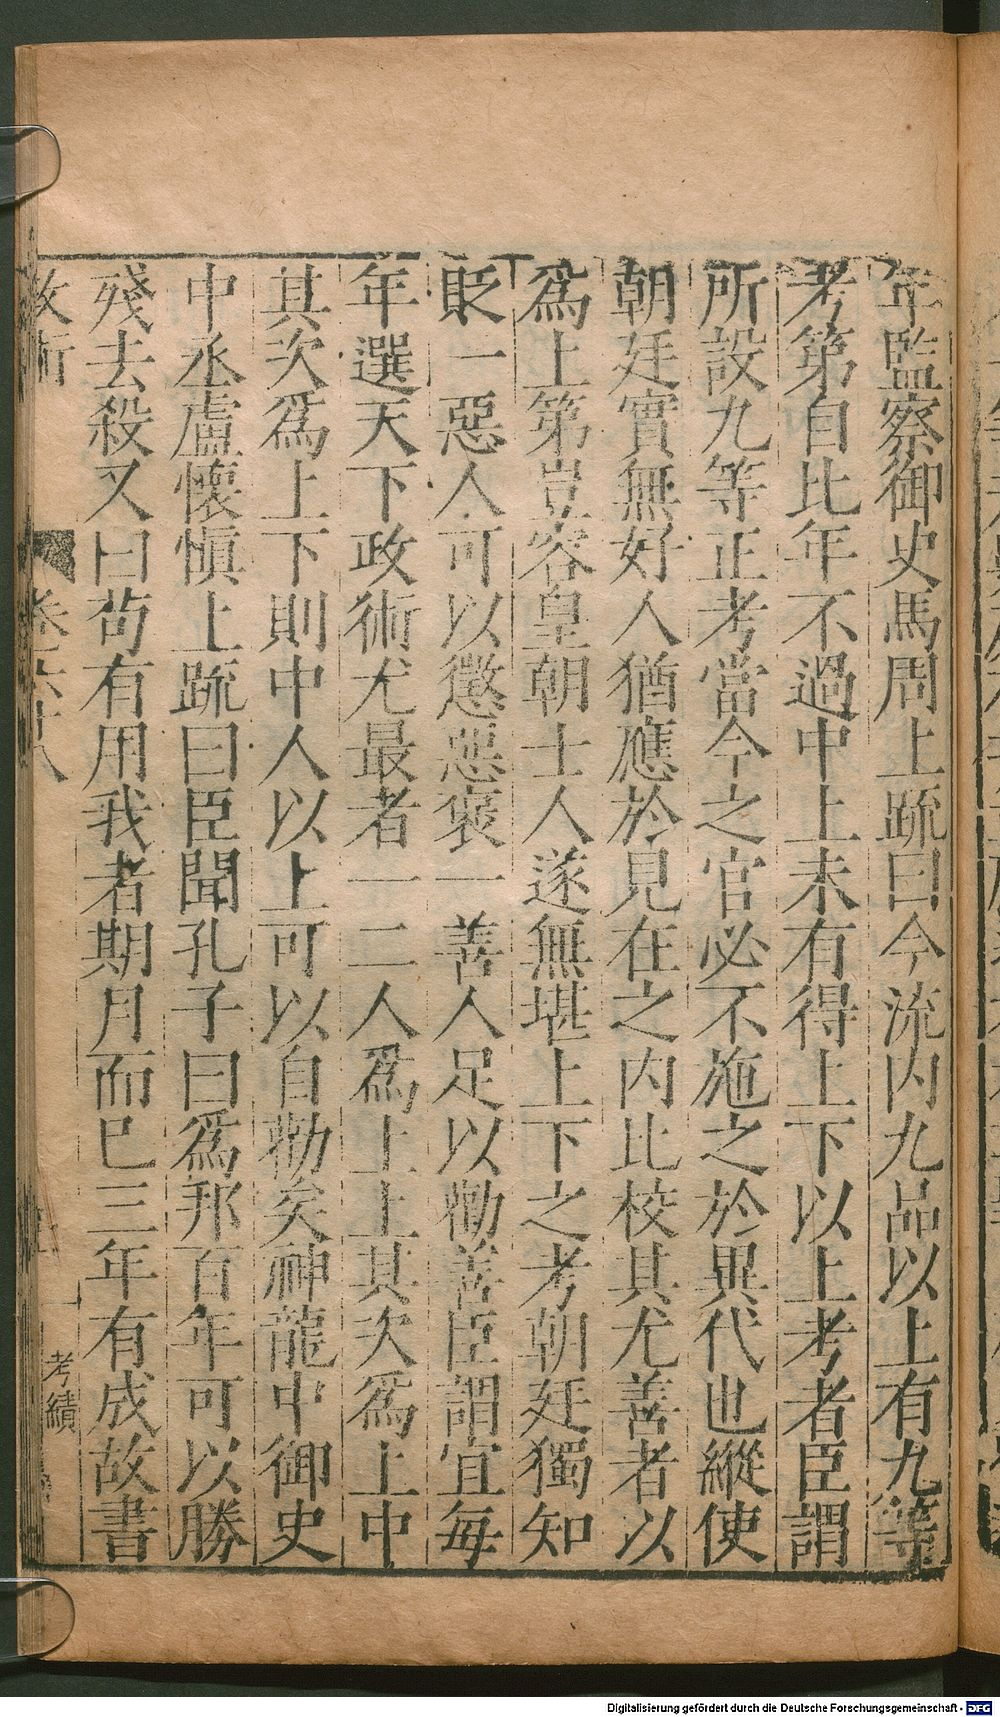 年監察御史馬周上疏曰今流内九品以上有九等
考第自比年不過中上未有得上下以上考者臣謂
所設九等正考當今之官必不施之於異代也縱使
朝廷實無好人猶應於見在之内比校其尤善者以
爲上第豈容皇朝士人遂無堪上下之考朝廷獨知
貶一惡人可以懲惡褒一善人足以勸善臣謂宜每
年選天下政術尤最者一二人爲上上其次爲上中
其次爲上下則中人以上可以自勸矣神龍中御史
中丞盧懷慎上疏曰臣聞孔子曰爲邦百年可以勝
殘去殺又曰茍有用我者期月而已三年有成故書
卷六十八
考績
Digitalisierung gefördert durch die Deutsche Forschungsgemeinschaft - DFG